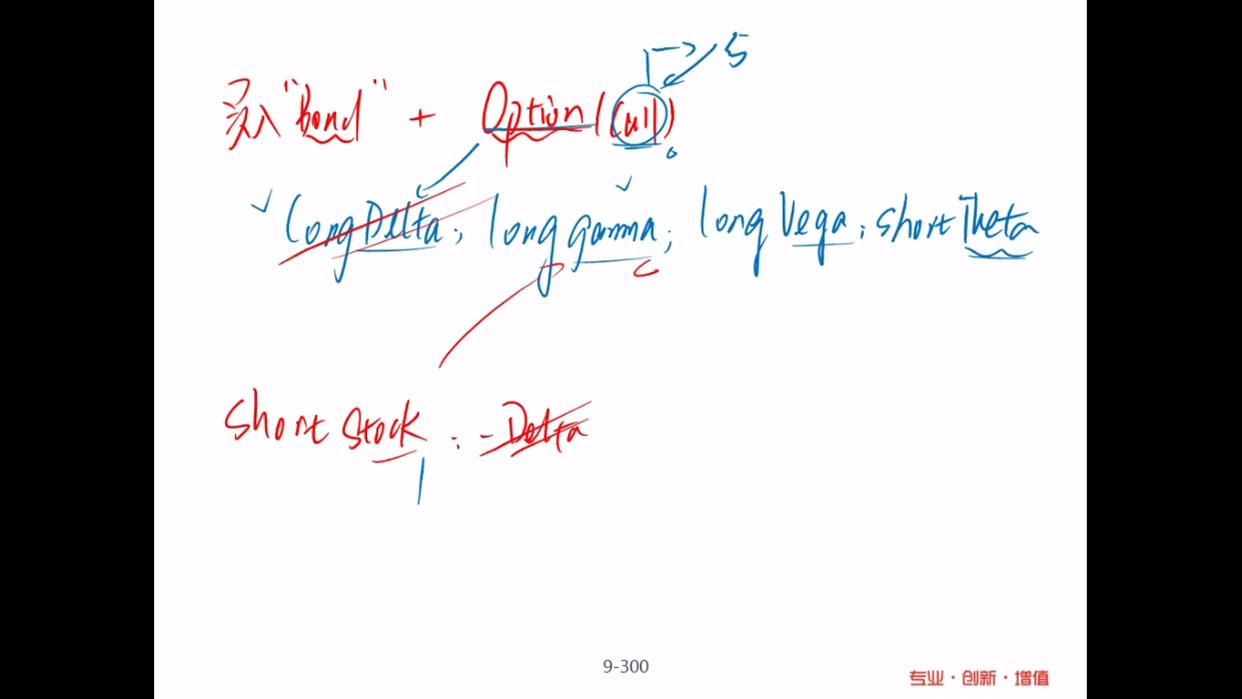 5
买入 "Bond" + Option (Call)
Long Delta; long gamma; long Vega; short Theta
Short Stock : -Delta
9-300
专业·创新·增值